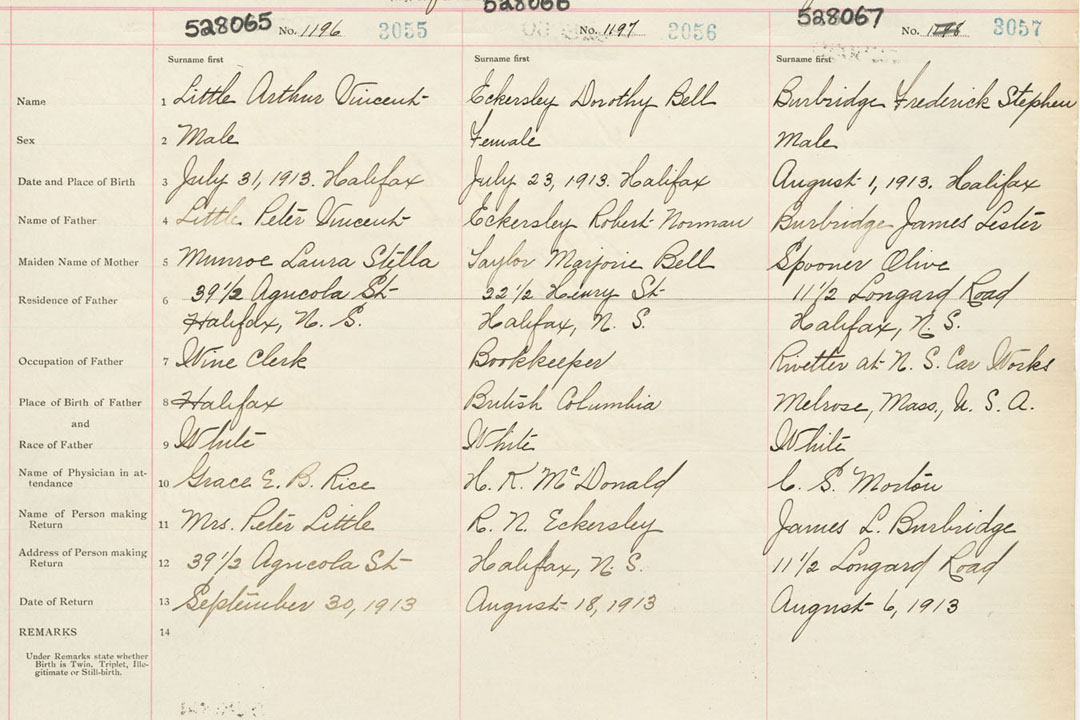 528065 No. 1196 3055 528066 No. 1197 3056 528067 No. 3057
Surname first Surname first Surname first
Name 1 Little Arthur Vincent Eckersley Dorothy Bell Burbridge Frederick Stephen
Sex 2 Male Female Male
Date and Place of Birth 3 July 31, 1913. Halifax July 23, 1913. Halifax August 1, 1913. Halifax
Name of Father 4 Little Peter Vincent Eckersley Robert Norman Burbridge James Lester
Maiden Name of Mother 5 Munroe Laura Stella Taylor Marjorie Bell Spooner Olive
Residence of Father 6 39 1/2 Agricola St 22 1/2 Henry St 11 1/2 Longard Road
Halifax, N. S. Halifax, N. S. Halifax, N. S.
Occupation of Father 7 Wine Clerk Bookkeeper Rivetter at N. S. Car Works
Place of Birth of Father 8 Halifax British Columbia Melrose, Mass., U. S. A.
and
Race of Father 9 White White White
Name of Physician in at-
tendance 10 Grace E. B. Rice H. K. McDonald C. S. Morton
Name of Person making
Return 11 Mrs. Peter Little R. N. Eckersley James L. Burbridge
Address of Person making
Return 12 39 1/2 Agricola St Halifax, N. S. 11 1/2 Longard Road
Date of Return 13 September 30, 1913 August 18, 1913 August 6, 1913
REMARKS 14
Under Remarks state whether
Birth is Twin, Triplet, Ille-
gitimate or Still-birth.